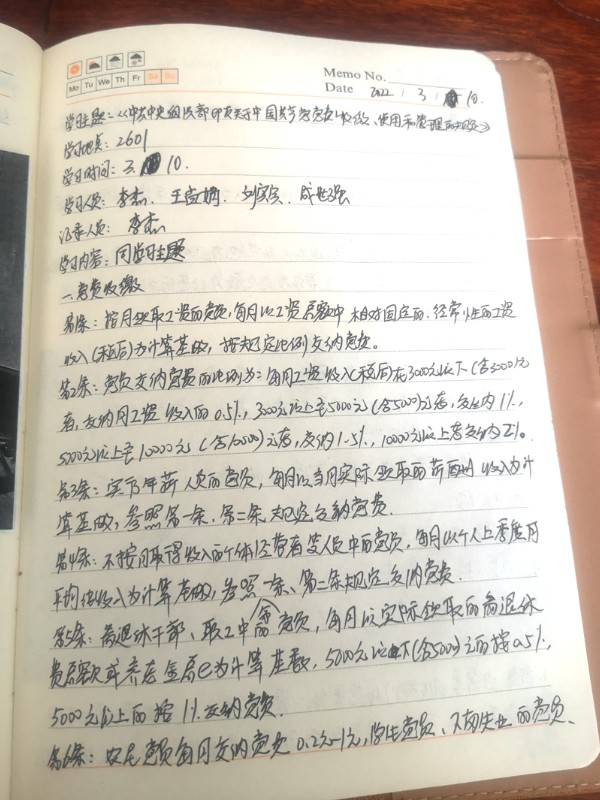 Mo Tu We Th Fr Sa Su
Memo No.
Date 2022 / 3 / 10.
学习主题:《中共中央组织部印发关于中国共产党党费收缴、使用和管理的规定》
学习地点: 2601
学习时间: 3. 10.
学习人员: 李杰. 王 刘 成世强
记录人员: 李杰
学习内容: 同学习主题
一.党费收缴
第1条: 按月领取工资的党员,每月以工资总额中相对固定的、经常性的工资
收入(税后)为计算基数,按规定比例交纳党费。
第2条: 党员交纳党费的比例为: 每月工资收入(税后)在3000元以下(含3000)元
者,交纳月工资收入的0.5%, 3000元以上至5000元(含5000)元者,交纳1%,
5000元以上至10000元(含10000)元者,交纳1.5%, 10000元以上者交纳2%。
第3条: 实行年薪人员的党员,每月以当月实际领取的薪酬收入为计
算基数,参照第一条、第二条规定交纳党费.
第4条: 不按月取得收入的个体经营者等人员中的党员,每月以个人上季度月
平均纯收入为计算基数,参照一条、第二条规定交纳党费.
第5条: 离退休干部、职工中的党员,每月以实际领取的离退休
费总额或养老金总额为计算基数, 5000元以下(含5000)元的按0.5%,
5000元以上的按1%交纳党费.
第6条: 农民党员每月交纳党费0.2元-1元,学生党员、下岗失业的党员、